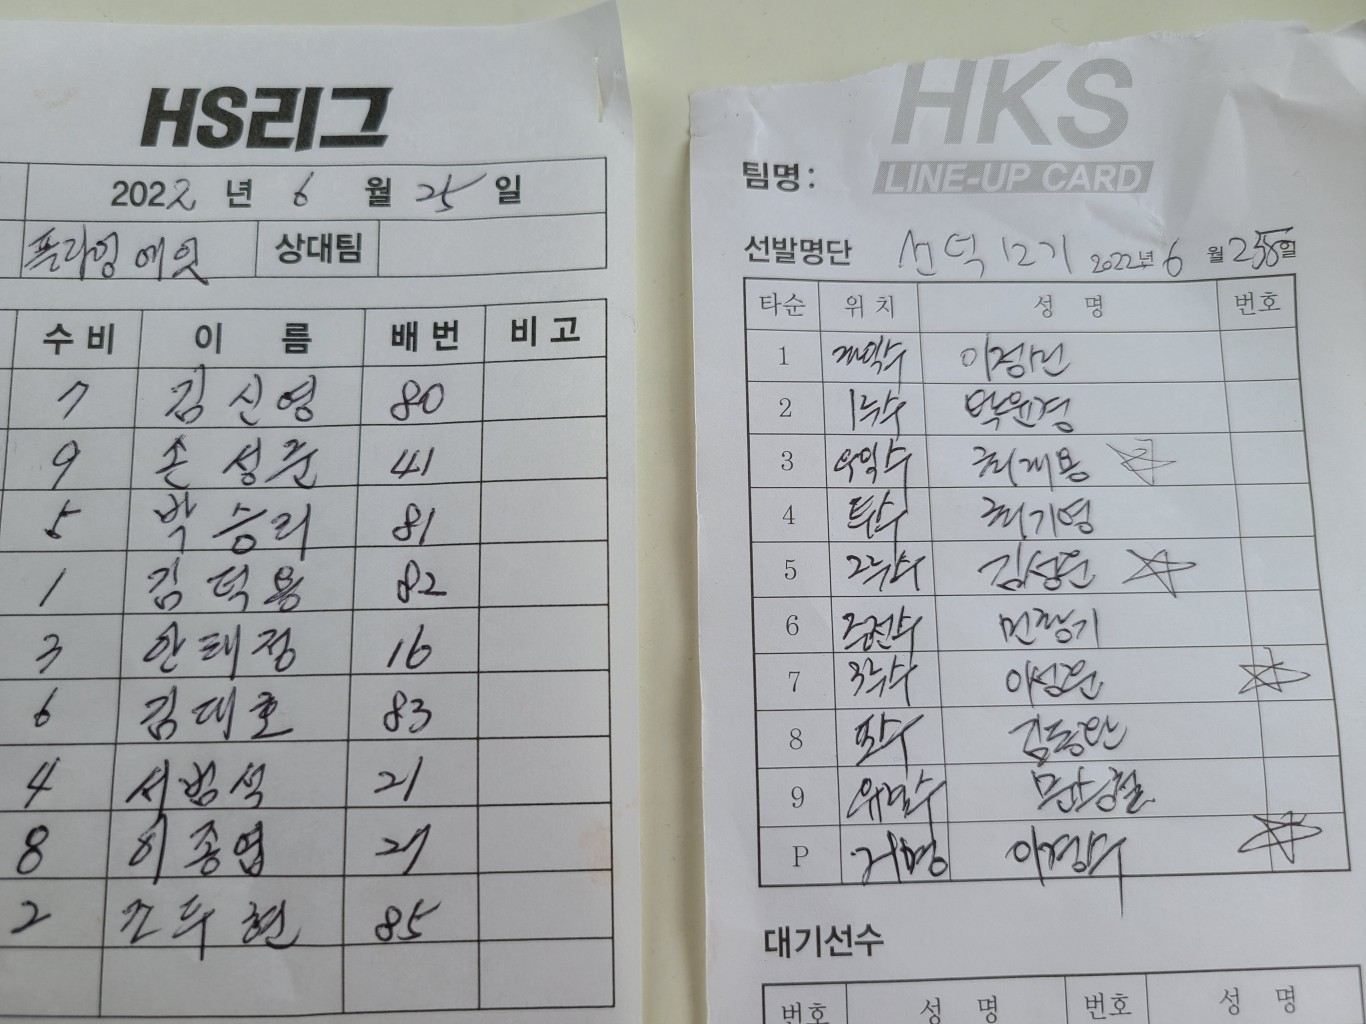 HS리그
2022 년 6 월 25 일
플라잉 에잇 상대팀
수비 이름 배번 비고
7 김신영 80
9 손성준 41
5 박승리 81
1 김덕용 82
3 안태정 16
6 김대호 83
4 서범석 21
8 이종엽 27
2 조두현 85
HKS
LINE-UP CARD
팀명:
선발명단 선덕 12기 2022년 6 월 25일
타순 위치 성명 번호
1 좌익수
2 1루수 박윤경
3 우익수 최재용
4 투수 최기영
5 2루수
6 중견수
7 3루수
8 포수
9 유격수
P
대기선수
번호 성명 번호 성명